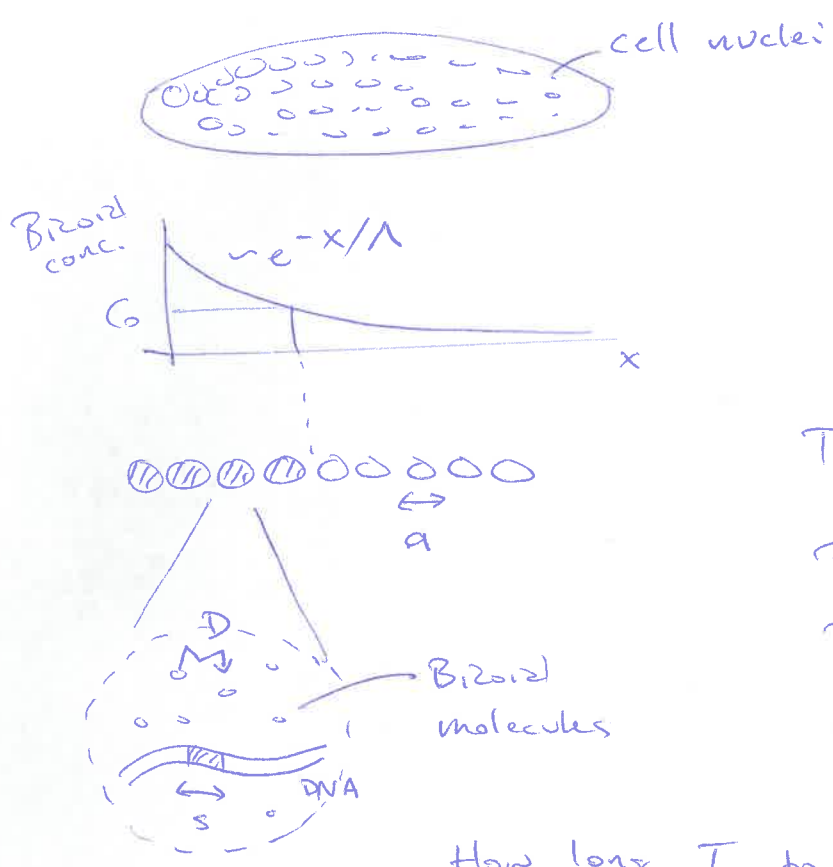 cell nuclei
Bizoid
conc.
~e^-x/Λ
C₀
x
T
a
D
Bizoid
molecules
DNA
s
How long T to